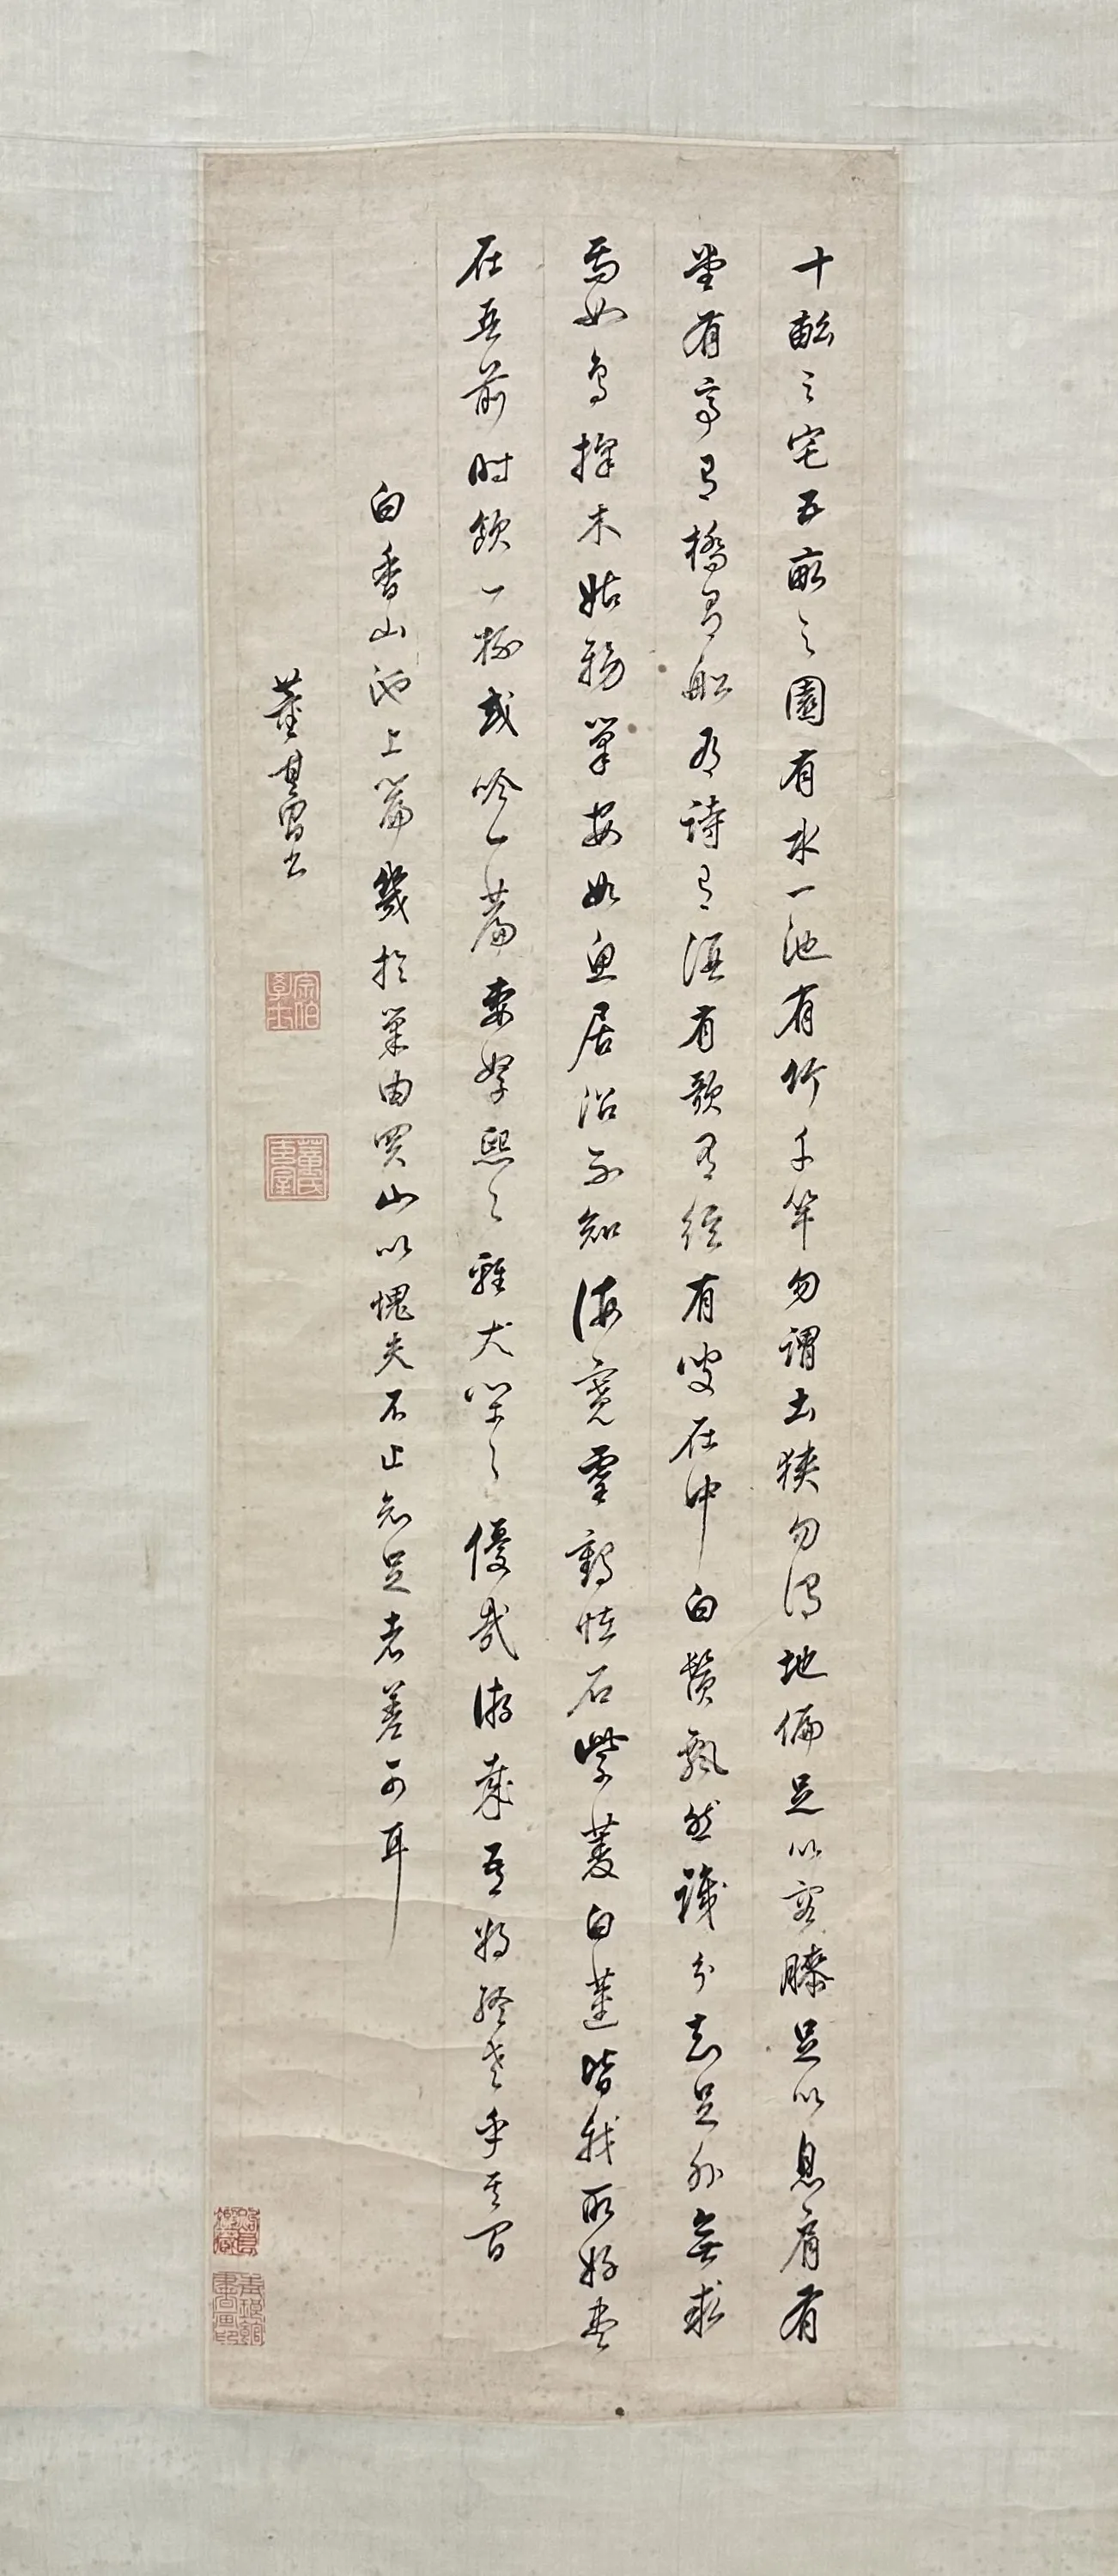 十畝之宅五畝之園有水一池有竹千竿勿謂土狹勿謂地偏足以容膝足以息肩有
堂有亭有橋有船有詩有酒有歌有絃有叟在中白鬚飄然識分知足外無求
焉如鳥擇木姑務巢安如魚居沼不知海寬靈鶴怪石紫菱白蓮皆我所好盡
在吾前時飲一杯或吟一篇妻孥熙々雞犬閑々優哉游哉吾將終老乎其間
白香山池上篇幾於巢由買山以愧夫不止知足者差可耳
董其昌書
宗伯學士
董氏玄宰